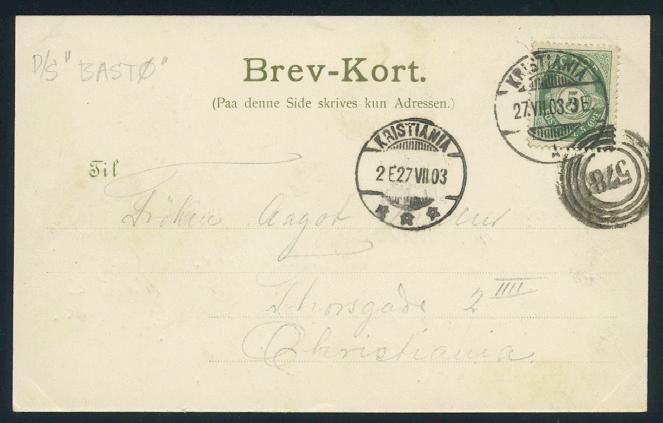 D/S "BASTØ"
Brev-Kort.
(Paa denne Side skrives kun Adressen.)
KRISTIANIA
27.VII.03
5
KRISTIANIA
2 E 27 VII 03
578
Til
Fröken Aagot
Thorsgade 2 IIII
Christiania.